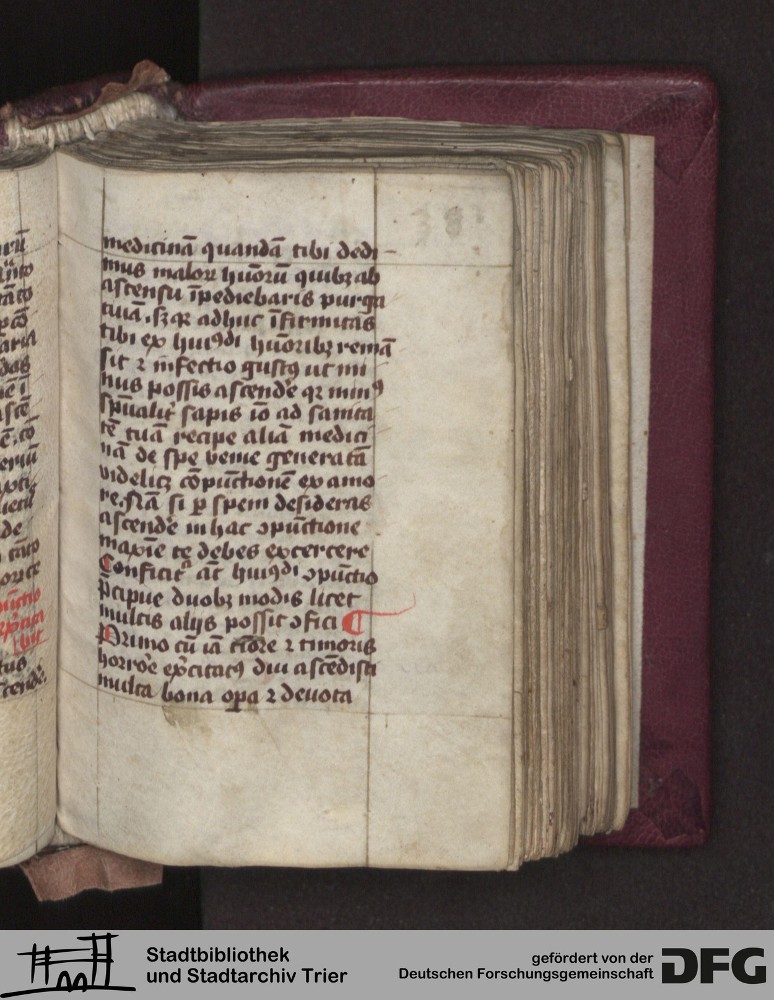 medicinā quandā tibi dedi-
mus malorꝝ hūorū quibꝫ ab
ascensu īpediebaris purga
tiuā. sꝫ qꝛ adhuc īfirmitas
tibi ex huiꝰdi hūoribꝫ remā
sit ⁊ infectio gustꝰ ut mi
nus possis ascende̾ qꝛ minꝰ
sp̄ualit̾ sapis iō ad sanita
tē tuā recipe aliā medici
nā de spe venie generatā
videlicꝫ cōpūctionē ex amo
re. Nā si ꝑ spem desideras
ascende̾ in hac ɔpūctione
maxīe te debes excercere
Conficit᷑ āt huiꝰdi ɔpūctio
p̄cipue duobꝫ modis licet
multis alijs possit ɔfici ¶
Primo cū iā tiōre ⁊ timoris
horro̾e exc̾citatꝰ diu ascēdisti
multa bona oꝑa ⁊ deuota
38
Stadtbibliothek
und Stadtarchiv Trier
gefördert von der
Deutschen Forschungsgemeinschaft
DFG